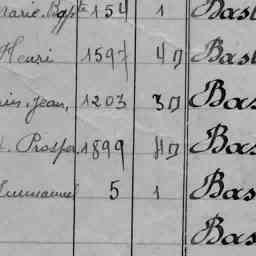 Marie Bapte 154 1 Bast
Henri 1597 4 D Bas
Jean, 1203 3 D Bas
Prosper 1899 4 D Bas
Emmanuel 5 1 Bas
Bas